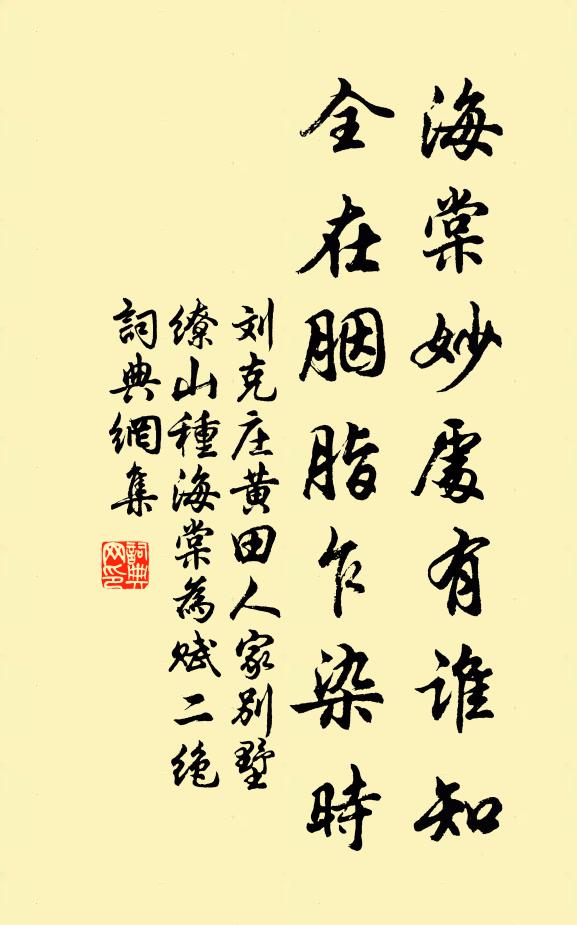 海棠妙處有谁知
全在胭脂乍染時
刘克庄黄田人家别墅
缭山種海棠為赋二绝
詞典網集
詞典
网印